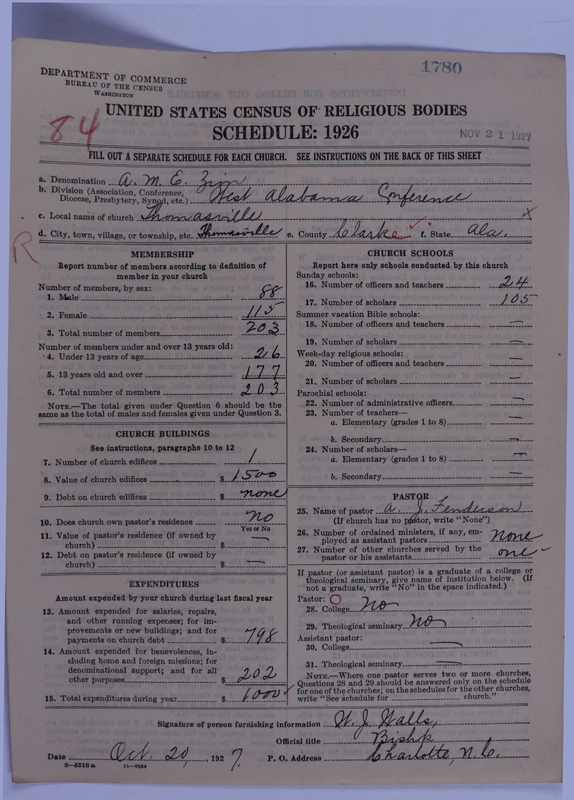 1780
DEPARTMENT OF COMMERCE
BUREAU OF THE CENSUS
WASHINGTON
84
UNITED STATES CENSUS OF RELIGIOUS BODIES
SCHEDULE: 1926
NOV 21 1927
FILL OUT A SEPARATE SCHEDULE FOR EACH CHURCH. SEE INSTRUCTIONS ON THE BACK OF THIS SHEET
a. Denomination A. M. E. Zion
b. Division (Association, Conference, Diocese, Presbytery, Synod, etc.) West Alabama Conference
c. Local name of church Thomasville x
d. City, town, village, or township, etc. Thomasville e. County Clarke f. State Ala.
R
MEMBERSHIP
Report number of members according to definition of
member in your church
Number of members, by sex:
1. Male 88
2. Female 115
3. Total number of members 203
Number of members under and over 13 years old:
4. Under 13 years of age 26
5. 13 years old and over 177
6. Total number of members 203
NOTE.—The total given under Question 6 should be the
same as the total of males and females given under Question 3.
CHURCH BUILDINGS
See instructions, paragraphs 10 to 12
7. Number of church edifices 1
8. Value of church edifices $ 1500
9. Debt on church edifices $ none
10. Does church own pastor's residence No
Yes or No
11. Value of pastor's residence (if owned by
church) $ —
12. Debt on pastor's residence (if owned by
church) $ —
EXPENDITURES
Amount expended by your church during last fiscal year
13. Amount expended for salaries, repairs,
and other running expenses; for im-
provements or new buildings; and for
payments on church debt $ 798
14. Amount expended for benevolences, in-
cluding home and foreign missions; for
denominational support; and for all
other purposes $ 202
15. Total expenditures during year $ 1000
CHURCH SCHOOLS
Report here only schools conducted by this church
Sunday schools:
16. Number of officers and teachers 24
17. Number of scholars 105
Summer vacation Bible schools:
18. Number of officers and teachers —
19. Number of scholars —
Week-day religious schools:
20. Number of officers and teachers —
21. Number of scholars —
Parochial schools:
22. Number of administrative officers —
23. Number of teachers—
a. Elementary (grades 1 to 8) —
b. Secondary —
24. Number of scholars—
a. Elementary (grades 1 to 8) —
b. Secondary —
PASTOR
25. Name of pastor A. J. Fenderson
(If church has no pastor, write "None")
26. Number of ordained ministers, if any, em-
ployed as assistant pastors None
27. Number of other churches served by the
pastor or his assistants one
If pastor (or assistant pastor) is a graduate of a college or
theological seminary, give name of institution below. (If
not a graduate, write "No" in the space indicated.)
Pastor:
28. College No
29. Theological seminary No
Assistant pastor:
30. College —
31. Theological seminary —
NOTE.—Where one pastor serves two or more churches,
Questions 28 and 29 should be answered only on the schedule
for one of the churches; on the schedules for the other churches,
write "See schedule for church."
Signature of person furnishing information W. J. Walls,
Official title Bishop
Date Oct. 20, 1927. P. O. Address Charlotte, N. C.
8—5518a 11—9034